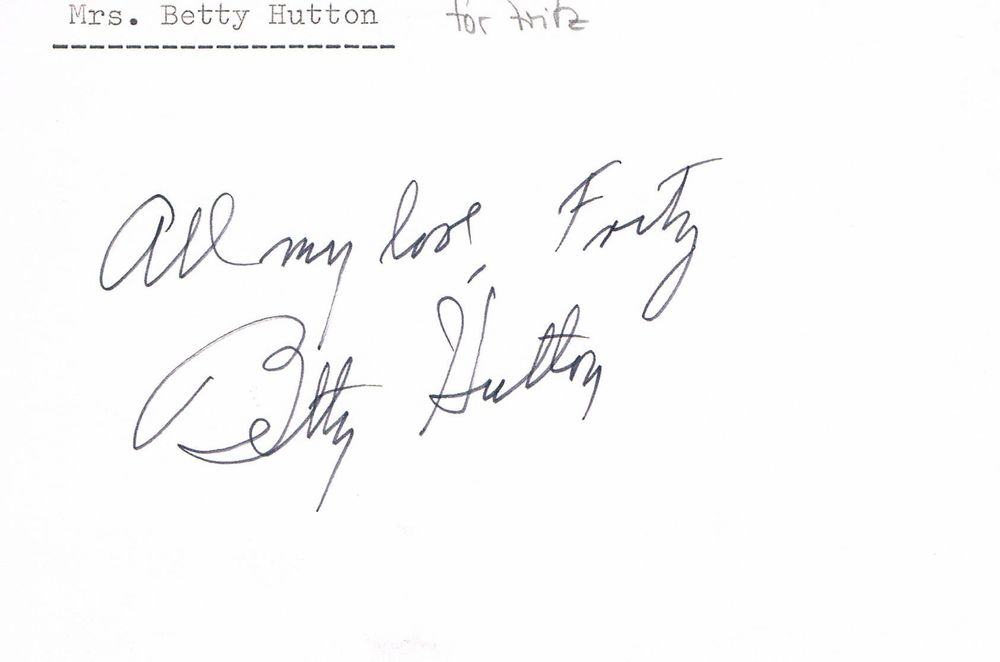 Mrs. Betty Hutton for Fritz
All my love, Fritz
Betty Hutton